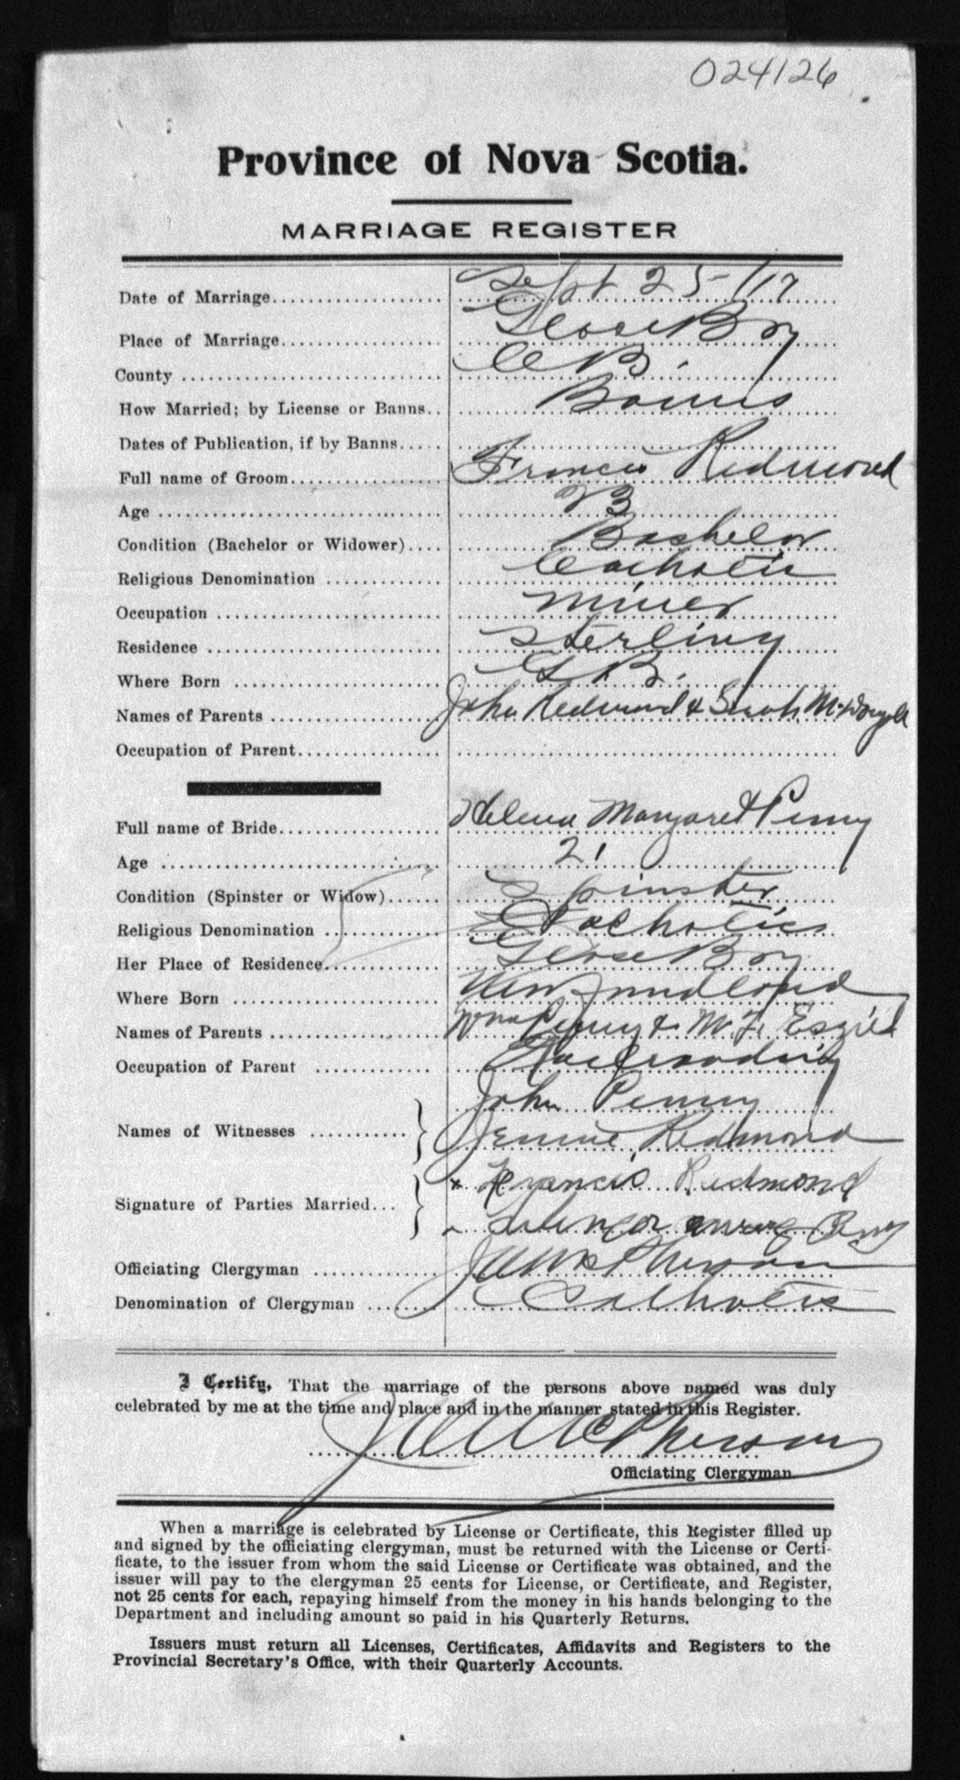 024126
Province of Nova Scotia.
MARRIAGE REGISTER
Date of Marriage Sept 25/17
Place of Marriage Glace Bay
County C B.
How Married; by License or Banns Banns
Dates of Publication, if by Banns
Full name of Groom Francis Redmond
Age
Condition (Bachelor or Widower) Bachelor
Religious Denomination Catholic
Occupation Miner
Residence Sterling
Where Born G. B.
Names of Parents John Redmond & Sarah
Occupation of Parent
Full name of Bride Helena Margaret Penny
Age 21
Condition (Spinster or Widow) Spinster
Religious Denomination Catholic
Her Place of Residence Glace Bay
Where Born Newfoundland
Names of Parents Wm Penny & M. F.
Occupation of Parent
John Penny
Names of Witnesses
Jennie Redmond
x Francis Redmond
Signature of Parties Married
Penny
Officiating Clergyman J A McPherson
Denomination of Clergyman Catholic
I Certify, That the marriage of the persons above named was duly
celebrated by me at the time and place and in the manner stated in this Register.
J A McPherson
Officiating Clergyman
When a marriage is celebrated by License or Certificate, this Register filled up
and signed by the officiating clergyman, must be returned with the License or Certi-
ficate, to the issuer from whom the said License or Certificate was obtained, and the
issuer will pay to the clergyman 25 cents for License, or Certificate, and Register,
not 25 cents for each, repaying himself from the money in his hands belonging to the
Department and including amount so paid in his Quarterly Returns.
Issuers must return all Licenses, Certificates, Affidavits and Registers to the
Provincial Secretary's Office, with their Quarterly Accounts.